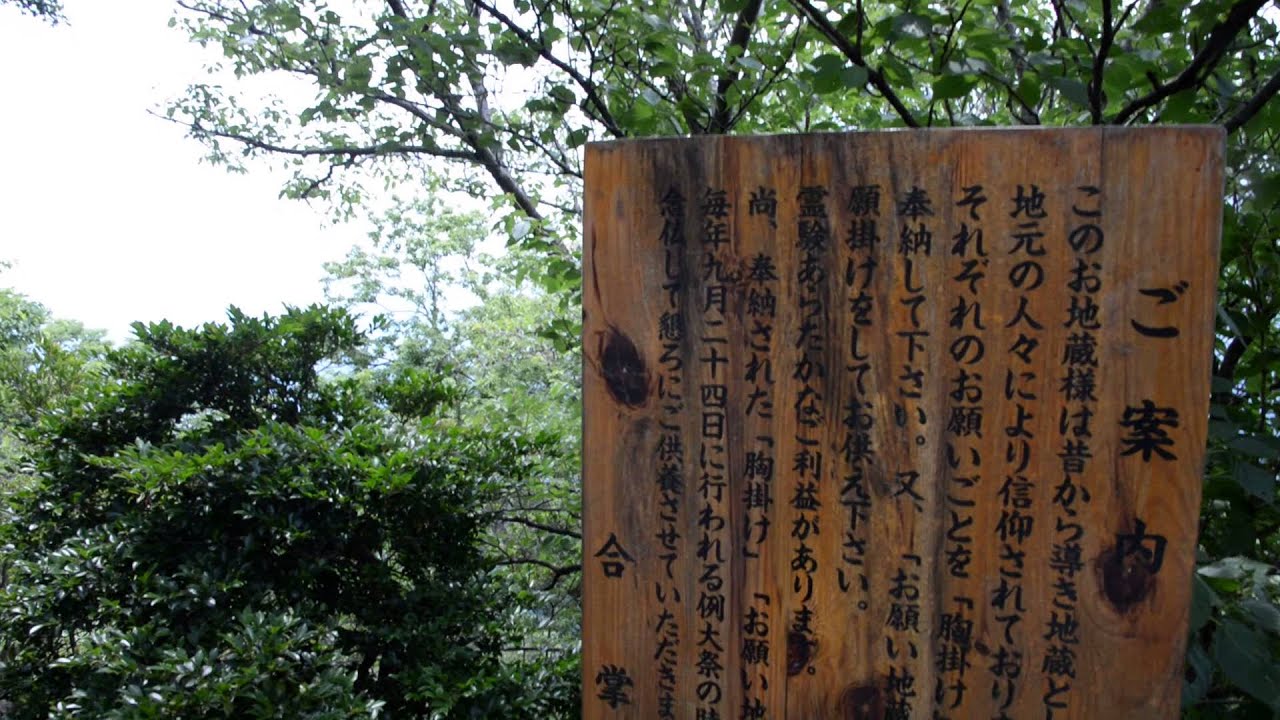 ご案内
このお地蔵様は昔から導き地蔵と
地元の人々により信仰されており
それぞれのお願いごとを「胸掛け
奉納して下さい。又、「お願い地蔵
願掛けをしてお供え下さい。
霊験あらたかなご利益があります。
尚、奉納された「胸掛け」「お願い地
毎年九月二十四日に行われる例大祭の時
念仏して懇ろにご供養させていただきま
合掌